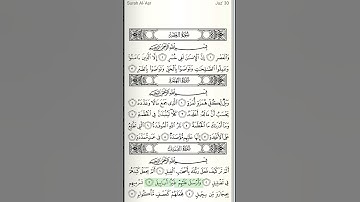 Surah Al-Asr Juz' 30
سُورَةُ العَصْرِ
بِسْمِ ٱللَّهِ ٱلرَّحْمَٰنِ ٱلرَّحِيمِ
وَٱلْعَصْرِ ١ إِنَّ ٱلْإِنسَٰنَ لَفِى خُسْرٍ ٢ إِلَّا ٱلَّذِينَ ءَامَنُوا۟
وَعَمِلُوا۟ ٱلصَّٰلِحَٰتِ وَتَوَاصَوْا۟ بِٱلْحَقِّ وَتَوَاصَوْا۟ بِٱلصَّبْرِ ٣
سُورَةُ الهُمَزَةِ
بِسْمِ ٱللَّهِ ٱلرَّحْمَٰنِ ٱلرَّحِيمِ
وَيْلٌ لِّكُلِّ هُمَزَةٍ لُّمَزَةٍ ١ ٱلَّذِى جَمَعَ مَالًا وَعَدَّدَهُۥ ٢
يَحْسَبُ أَنَّ مَالَهُۥٓ أَخْلَدَهُۥ ٣ كَلَّا لَيُنۢبَذَنَّ فِى ٱلْحُطَمَةِ ٤
وَمَآ أَدْرَىٰكَ مَا ٱلْحُطَمَةُ ٥ نَارُ ٱللَّهِ ٱلْمُوقَدَةُ ٦ ٱلَّتِى تَطَّلِعُ
عَلَى ٱلْأَفْـِٔدَةِ ٧ إِنَّهَا عَلَيْهِم مُّؤْصَدَةٌ ٨ فِى عَمَدٍ مُّمَدَّدَةٍۭ ٩
سُورَةُ الفِيلِ
بِسْمِ ٱللَّهِ ٱلرَّحْمَٰنِ ٱلرَّحِيمِ
أَلَمْ تَرَ كَيْفَ فَعَلَ رَبُّكَ بِأَصْحَٰبِ ٱلْفِيلِ ١ أَلَمْ يَجْعَلْ كَيْدَهُمْ
فِى تَضْلِيلٍ ٢ وَأَرْسَلَ عَلَيْهِمْ طَيْرًا أَبَابِيلَ ٣ تَرْمِيهِم
بِحِجَارَةٍ مِّن سِجِّيلٍ ٤ فَجَعَلَهُمْ كَعَصْفٍ مَّأْكُولٍۭ ٥